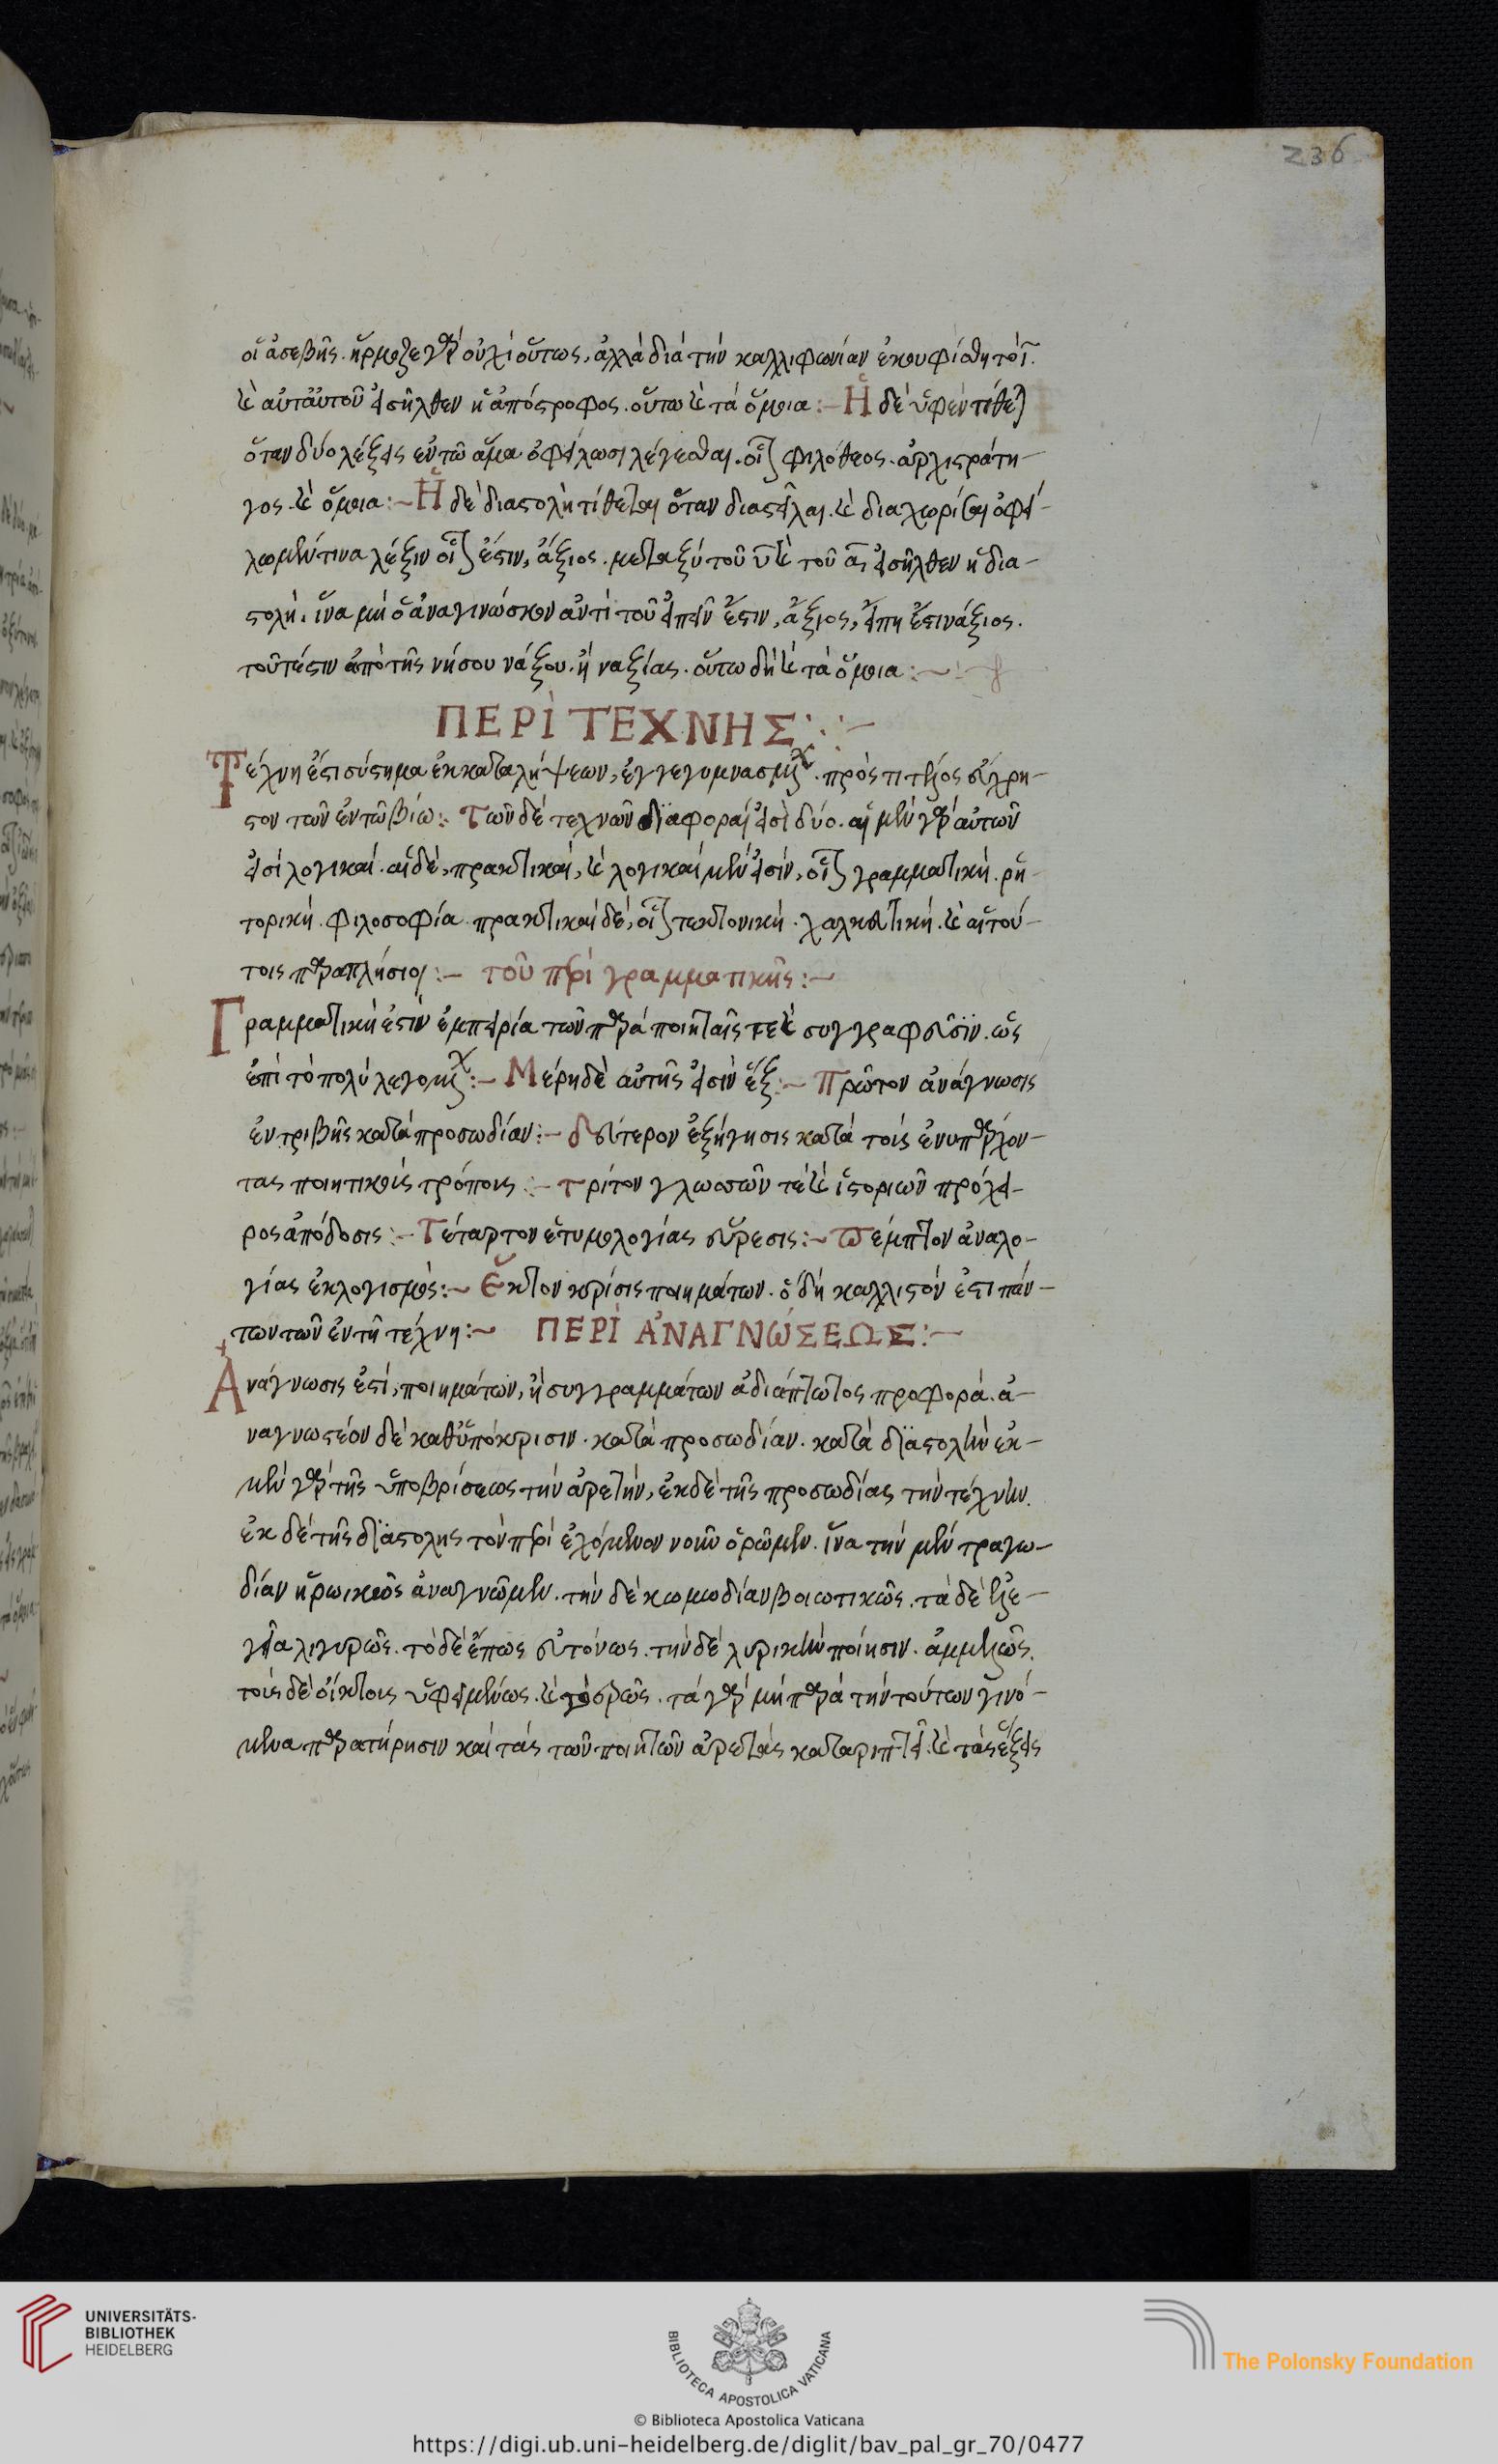 236
οἱ ἀσεβῆς. ἥρμοζε γὰρ οὐχὶ οὕτως, ἀλλὰ διὰ τὴν καλλιφωνίαν ἐκουφίσθη τὸ ι̅.
καὶ αὐτ' αὐτοῦ εἰσῆλθεν ἡ ἀπόστροφος. οὕτω καὶ τὰ ὅμοια :– Ἡ δὲ ὑφὲν τίθεται
ὅταν δύο λέξεις ἐν τῶ ἅμα ὀφείλωσι λέγεσθαι. οἷον φιλόθεος. ἀρχιστράτη-
γος. καὶ ὅμοια :~ Ἡ δὲ διαστολὴ τίθεται ὅταν διαστεῖλαι. καὶ διαχωρίσαι ὀφεί-
λωμέν τινα λέξιν οἷον ἔστιν, ἄξιος. μεταξὺ τοῦ ν̅ καὶ τοῦ α̅, εἰσῆλθεν ἡ δια-
στολή. ἵνα μὴ ὁ ἀναγινώσκων ἀντὶ τοῦ εἰπεῖν ἔστιν, ἄξιος, εἴπη ἔστι νάξιος.
τουτέστιν ἀπὸ τῆς νήσου νάξου. ἢ ναξίας. οὕτω δὴ καὶ τὰ ὅμοια :~
ΠΕΡῚ ΤΈΧΝΗΣ :–
Τέχνη ἐστὶ σύστημα ἐκ καταλήψεων, ἐγγεγυμνασμένων. πρός τι τέλος εὔχρη-
στον τῶν ἐν τῶ βίω :. Τῶν δὲ τεχνῶν διαφοραὶ εἰσὶ δύο. αἱ μὲν γὰρ αὐτῶν
εἰσὶ λογικαί. αἱ δὲ, πρακτικαὶ, καὶ λογικαὶ μέν εἰσιν, οἷον γραμματική. ῥη-
τορική. φιλοσοφία πρακτικαὶ δὲ, οἷον τεκτονική. χαλκευτική. καὶ αἱ τού-
τοις παραπλήσιοι :– τοῦ περὶ γραμματικῆς :~
Γραμματική ἐστιν ἐμπειρία τῶν παρὰ ποιηταῖς τε καὶ συγγραφεῦσιν. ὡς
ἐπὶ τὸ πολὺ λεγομένων :– Μέρη δὲ αὐτῆς εἰσὶν ἕξ :– Πρῶτον ἀνάγνωσις
ἐντριβὴς κατὰ προσωδίαν :– δεύτερον ἐξήγησις κατὰ τοὺς ἐνυπάρχον-
τας ποιητικοὺς τρόπους :– τρίτον γλωσσῶν τὲ καὶ ἱστοριῶν πρόχει-
ρος ἀπόδοσις :– Τέταρτον ἐτυμολογίας εὕρεσις :~ πέμπτον ἀναλο-
γίας ἐκλογισμός :~ Ἕκτον κρίσις ποιημάτων. ὃ δὴ καλλιστόν ἐστι πάν-
των τῶν ἐν τῆ τέχνη :~ ΠΕΡῚ ἈΝΑΓΝΏΣΕΩΣ :–
Ἀνάγνωσις ἐστὶ, ποιημάτων, ἢ συγγραμμάτων ἀδιάπτωτος προφορά. ἀ-
ναγνωστέον δὲ καθ' ὑπόκρισιν. κατὰ προσωδίαν. κατὰ διαστολὴν ἐκ-
μὲν γὰρ τῆς ὑποκρίσεως τὴν ἀρετὴν, ἐκ δὲ τῆς προσωδίας τὴν τέχνην.
ἐκ δὲ τῆς διαστολης τὸν περιεχόμενον νοῦν ὁρῶμεν. ἵνα τὴν μὲν τραγω-
δίαν ἡρωικῶς ἀναγνῶμεν. τὴν δὲ κωμωδίαν βοιωτικῶς. τὰ δὲ ἐλε-
γεῖα λιγυρῶς. τὸ δὲ ἔπως εὐτόνως. τὴν δὲ λυρικὴν ποίησιν. ἐμμελῶς.
τοὺς δὲ οἴκτους ὑφειμένως. καὶ γοερῶς. τὰ γὰρ μὴ παρὰ τὴν τούτων γινό-
μενα παρατήρησιν καὶ τὰς τῶν ποιητῶν ἀρετὰς καταριπτεῖ. καὶ τὰς ἕξεις
UNIVERSITÄTS-
BIBLIOTHEK
HEIDELBERG
BIBLIOTECA APOSTOLICA VATICANA
The Polonsky Foundation
© Biblioteca Apostolica Vaticana
https://digi.ub.uni-heidelberg.de/diglit/bav_pal_gr_70/0477